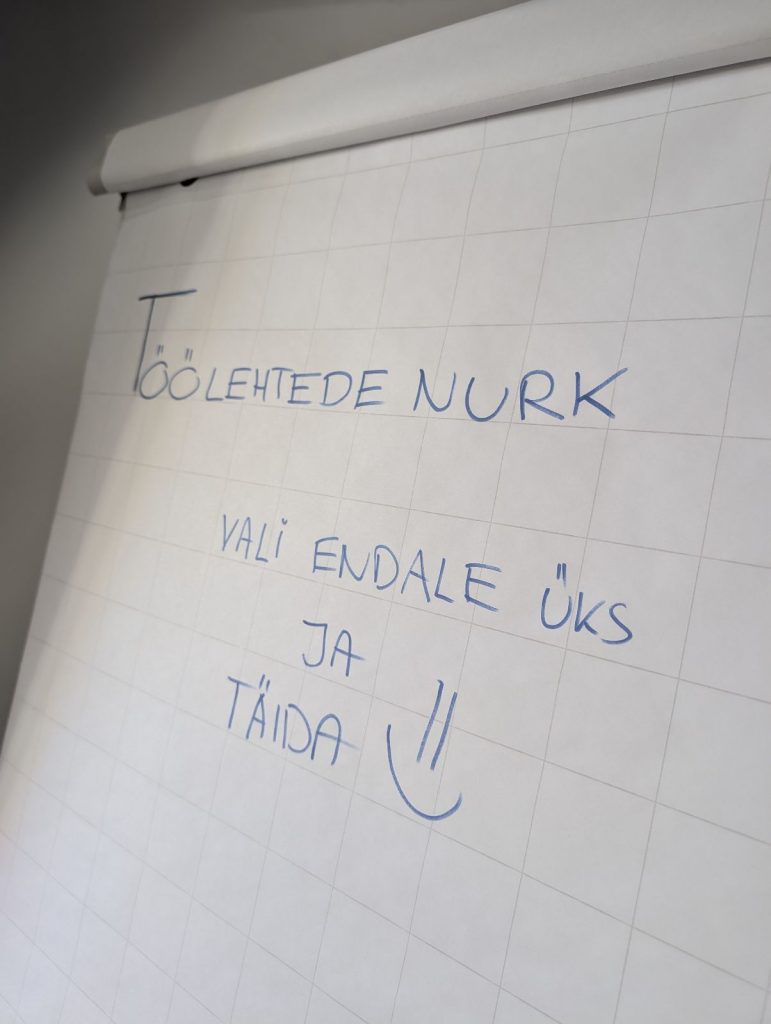 TÖÖLEHTEDE NURK
VALI ENDALE ÜKS
JA
TÄIDA